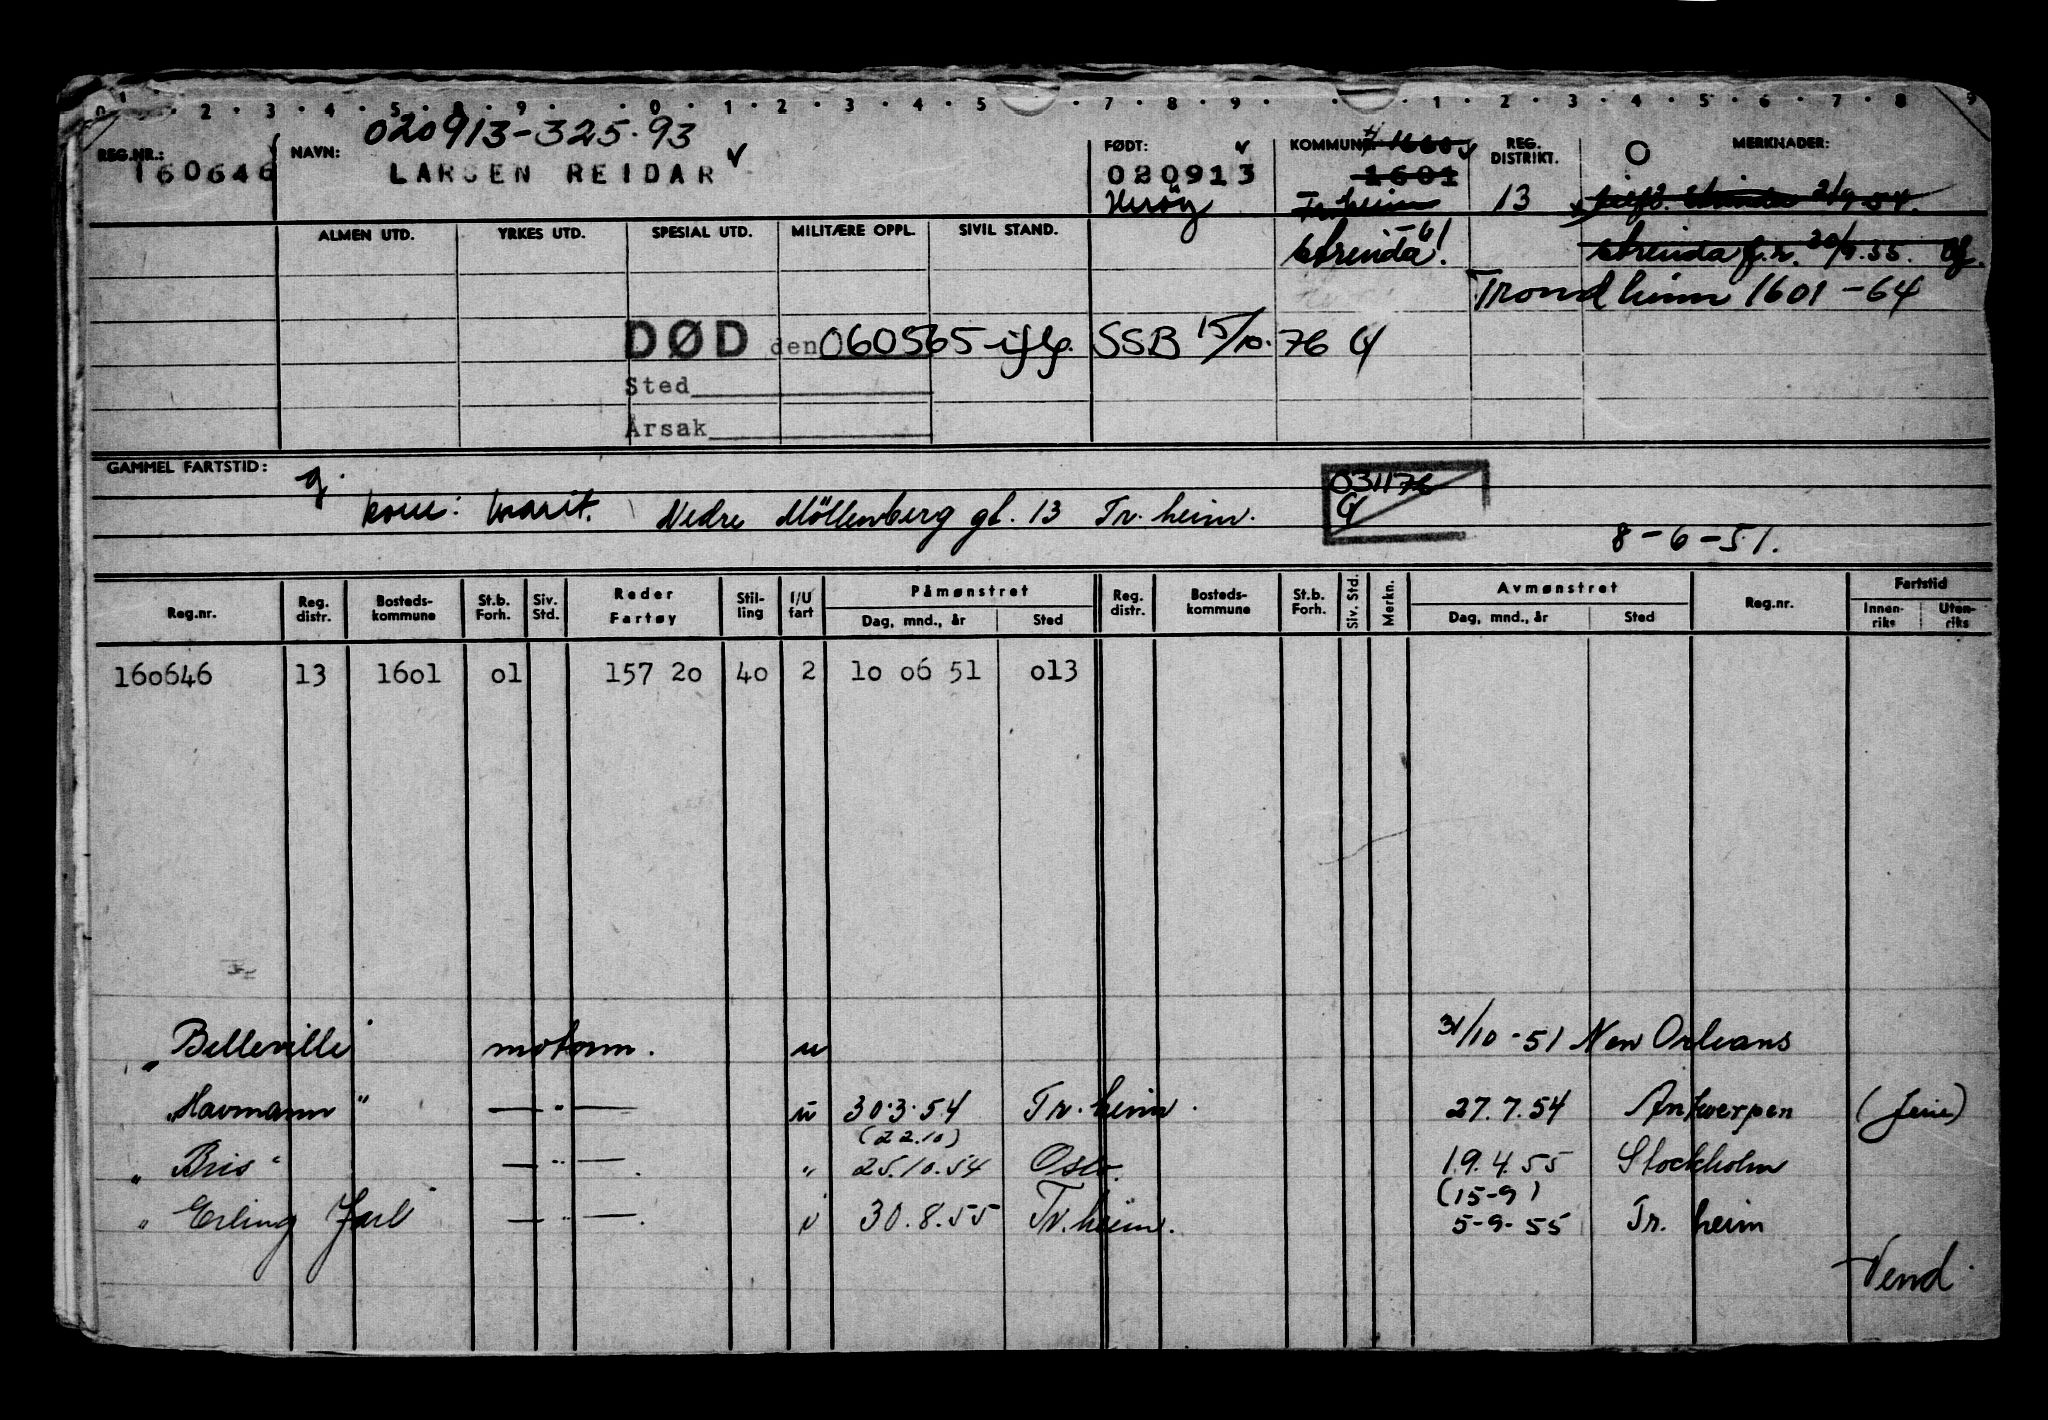 0 1 2 3 4 5 8 9 0 1 2 3 4 5 7 8 9 1 2 3 4 5 6 7 8 9
020913-325.93
REG.NR.: 160646
NAVN: LARSEN REIDAR
FØDT: 020913
Herøy
KOMMUNE 1660
1601
Tr.heim
Strinda -61
REG. DISTRIKT. 13
MERKNADER:
Strinda 2/9 54.
Strinda f.r. 20/9.55.
Trondheim 1601-64
ALMEN UTD. YRKES UTD. SPESIAL UTD. MILITÆRE OPPL. SIVIL STAND.
DØD den 060565 iflg. SSB 15/10.76 G
Sted
Årsak
GAMMEL FARTSTID:
g.
031176
G
Marit. Nedre Möllenberg gt. 13 Tr.heim.
8-6-51.
Reg.nr. Reg. distr. Bosteds-kommune St.b. Forh. Siv. Std. Reder Fartøy Stil-ling I/U fart Påmønstret Dag, mnd., år Sted Reg. distr. Bosteds-kommune St.b. Forh. Siv. Std. Merkn. Avmønstret Dag, mnd., år Sted Reg.nr. Fartstid Innen-riks Uten-riks
160646 13 1601 01 157 20 40 2 10 06 51 013
"Belleville" motorm. u 31/10-51 New Orleans
"Havmann" — " — u 30.3.54 Tr.heim. 27.7.54 Antwerpen (ferie)
(22.10)
"Bris" — " — . " 25.10.54 Oslo. 19.4.55 Stockholm
(15-9)
"Erling Jarl" — " — . i 30.8.55 Tr.heim. 5-9-55 Tr.heim
Vend